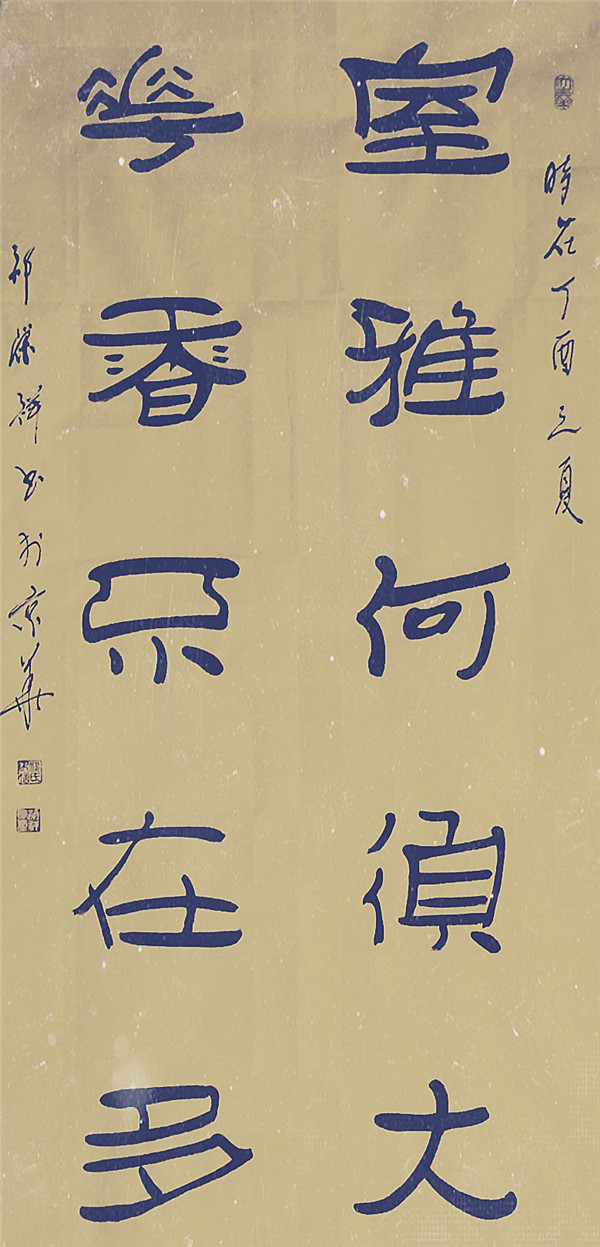 時在丁酉之夏
室雅何須大
華香不在多
祥书於京華